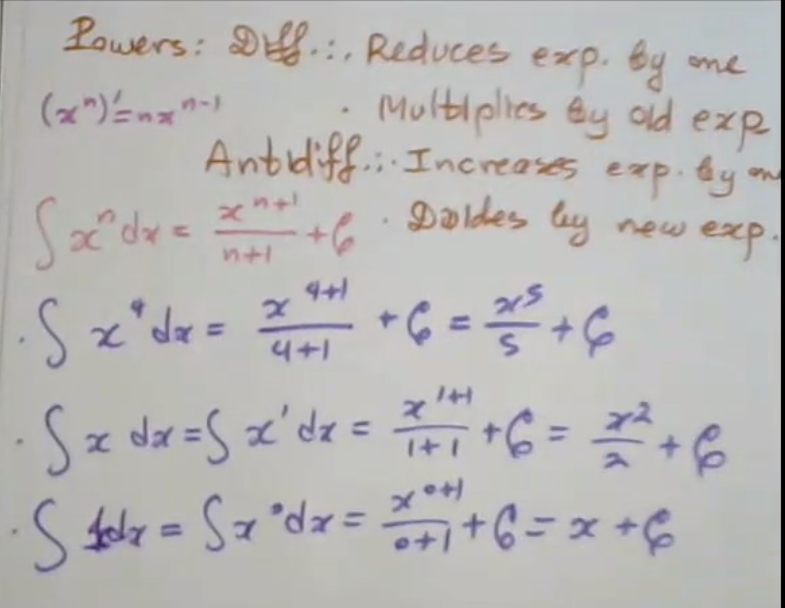 Powers: Diff.: . Reduces exp. by one
(xⁿ)' = nxⁿ⁻¹ . Multiplies by old exp
Antidiff.: . Increases exp. by one
∫ xⁿ dx = xⁿ⁺¹/(n+1) + C . Divides by new exp.
. ∫ x⁴ dx = x⁴⁺¹/(4+1) + C = x⁵/5 + C
. ∫ x dx = ∫ x¹ dx = x¹⁺¹/(1+1) + C = x²/2 + C
. ∫ 1dx = ∫ x⁰ dx = x⁰⁺¹/(0+1) + C = x + C